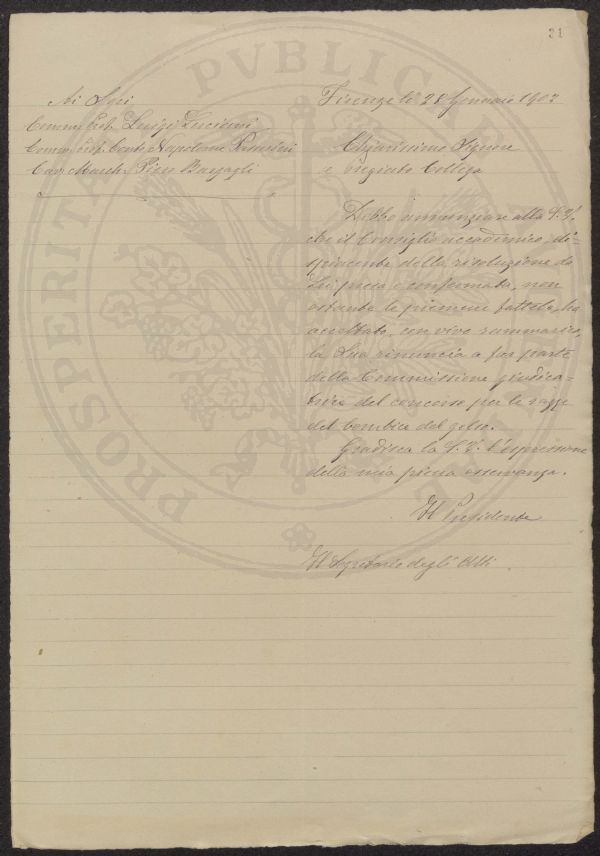 31
Ai Sigri
Comm. Prof. Luigi Luciani
Comm. Prof. Conte Napoleone Passerini
Cav. March. Piero Bargagli
Firenze lì 28 Gennaio 1902
Chiarissimo Signore
e pregiato Collega
Debbo annunziare alla S.V.
che il Consiglio accademico, di-
spiacente della risoluzione da
Lei presa e confermata, non
ostante le premure fattele, ha
accettato, con vivo rammarico,
la Sua rinuncia a far parte
della Commissione giudica-
trice del concorso per le razze
del bombice del gelso.
Gradisca la S.V. l'espressione
della mia piena osservanza.
Il Presidente
Il Segretario degli Atti
PROSPERITA PUBLICA